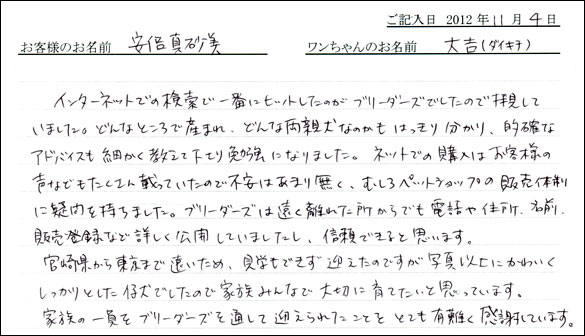 ご記入日 2012年11月4日
お客様のお名前 安倍真砂美 ワンちゃんのお名前 大吉(ダイキチ)
インターネットでの検索で一番にヒットしたのがブリーダーズでしたので拝見して
いました。どんなところで産まれ、どんな両親犬なのかも はっきり分かり、的確な
アドバイスも細かく教えて下さり勉強になりました。ネットでの購入はお客様の
声などもたくさん載っていたので不安はあまり無く、むしろペットショップの販売体制
に疑問を持ちました。ブリーダーズは遠く離れた所からでも電話や住所、名前、
販売登録など詳しく公開していましたし、信頼できると思います。
宮崎県から東京まで遠いため、見学もできず迎えたのですが写真以上にかわいく
しっかりとした仔犬でしたので家族みんなで大切に育てたいと思っています。
家族の一員をブリーダーズを通して迎えられたことを とても有難く感謝しています。